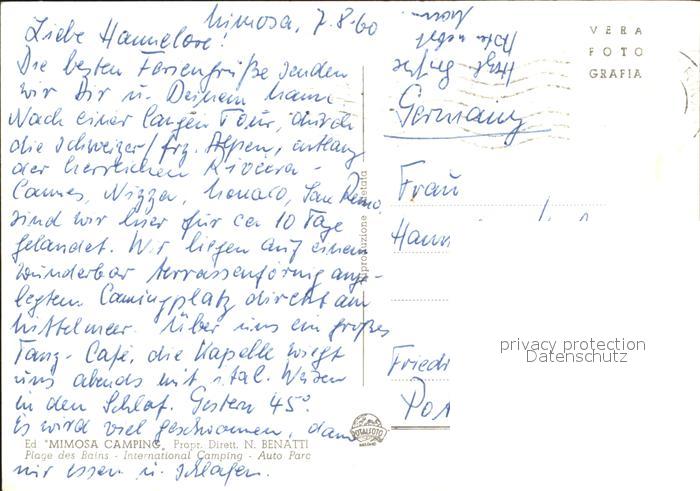 Mimosa, 7.8.60
Liebe Hannelore!
Die besten Feriengrüße senden
wir Dir u. Deinem Mann.
Nach einer langen Tour, durch
die Schweizer/frz. Alpen, entlang
der herrlichen Riviera -
Cannes, Nizza, Monaco, San Remo,
sind wir hier für ca 10 Tage
gelandet. Wir liegen auf einem
wunderbar terrassenförmig ange-
legten Campingplatz direkt am
Mittelmeer. Über uns ein großes
Tanz-Café, die Kapelle wiegt
uns abends mit ital. Weisen
in den Schlaf. Gestern 45°.
Es wird viel geschwommen, dann
Ed "MIMOSA CAMPING" Propr. Dirett. N. BENATTI
Plage des Bains - International Camping - Auto Parc
nur essen u. schlafen.
Herzl. Grüße
VERA
FOTO
GRAFIA
Germany
Frau
Hann
Friedr
Pos
privacy protection
Datenschutz